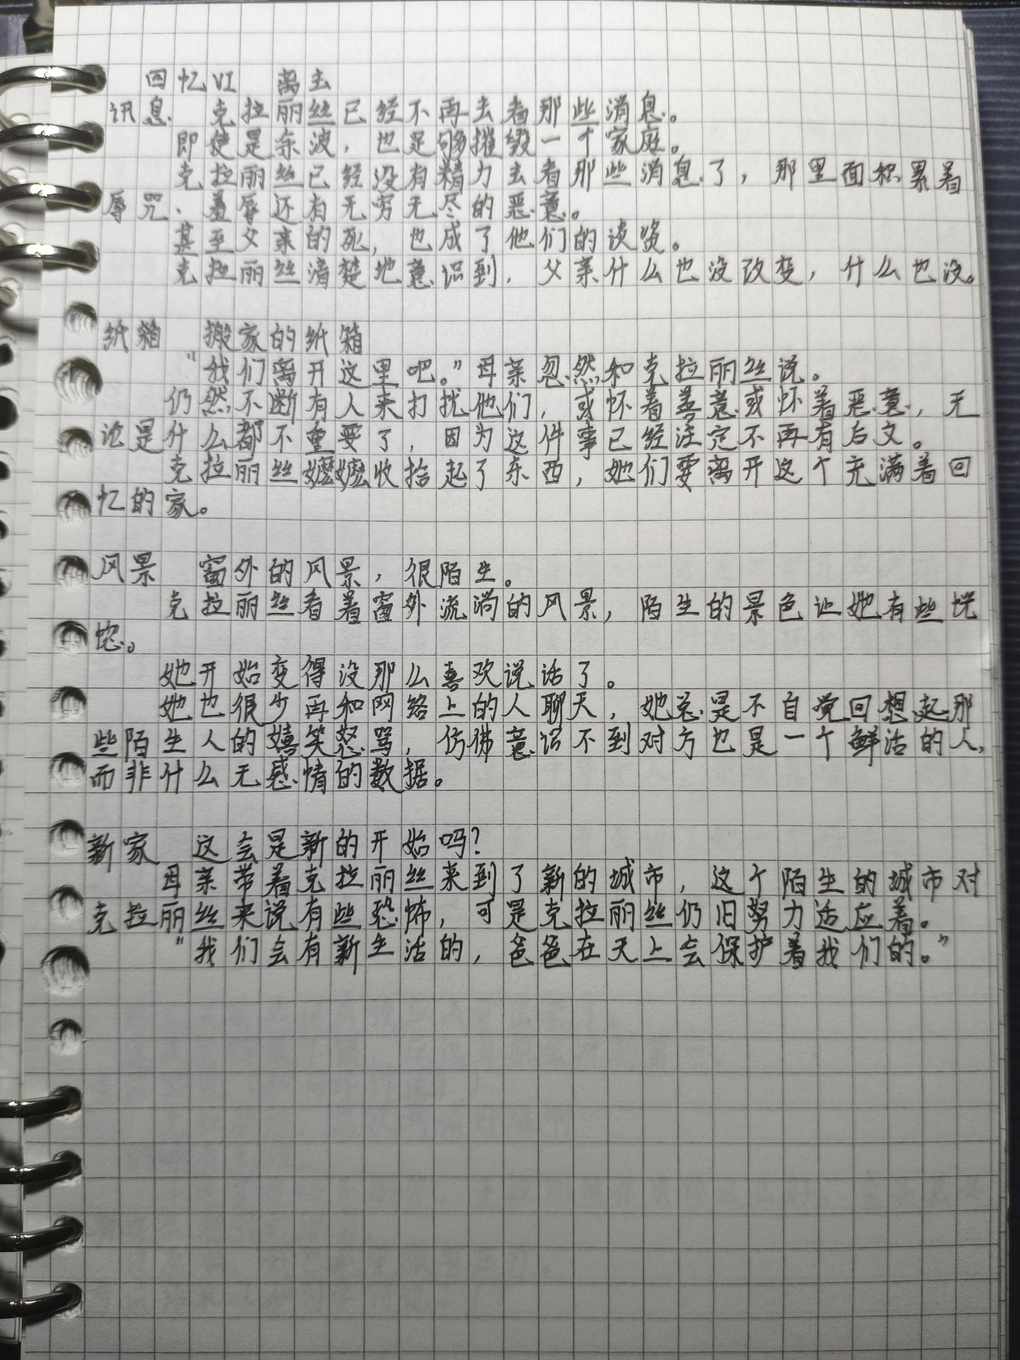 回忆VI 离去
讯息 克拉丽丝已经不再去看那些消息。
即使是余波，也足够摧毁一个家庭。
克拉丽丝已经没有精力去看那些消息了，那里面积累着
辱咒、羞辱还有无穷无尽的恶意。
甚至父亲的死，也成了他们的谈资。
克拉丽丝清楚地意识到，父亲什么也没改变，什么也没。
纸箱 搬家的纸箱
“我们离开这里吧。”母亲忽然和克拉丽丝说。
仍然不断有人来打扰他们，或怀着善意或怀着恶意，无
论是什么都不重要了，因为这件事已经注定不再有后文。
克拉丽丝嬷嬷收拾起了东西，她们要离开这个充满着回
忆的家。
风景 窗外的风景，很陌生。
克拉丽丝看着窗外流淌的风景，陌生的景色让她有些恍
惚。
她开始变得没那么喜欢说话了。
她也很少再和网络上的人聊天，她总是不自觉回想起那
些陌生人的嬉笑怒骂，仿佛意识不到对方也是一个鲜活的人，
而非什么无感情的数据。
新家 这会是新的开始吗？
母亲带着克拉丽丝来到了新的城市，这个陌生的城市对
克拉丽丝来说有些恐怖，可是克拉丽丝仍旧努力适应着。
“我们会有新生活的，爸爸在天上会保护着我们的。”